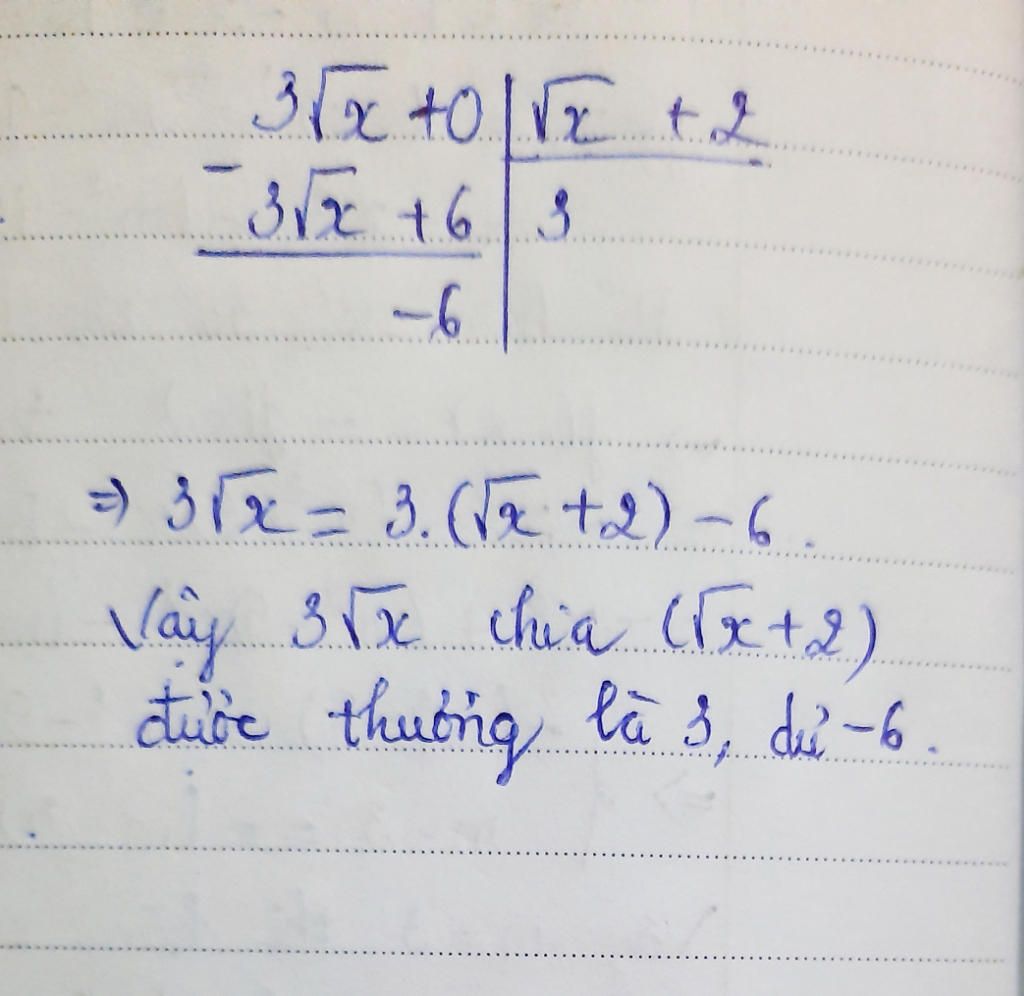 3√x + 0 | √x + 2
- 3√x + 6 | 3
-6
⇒ 3√x = 3.(√x + 2) - 6.
Vậy 3√x chia (√x + 2)
được thương là 3, dư -6.